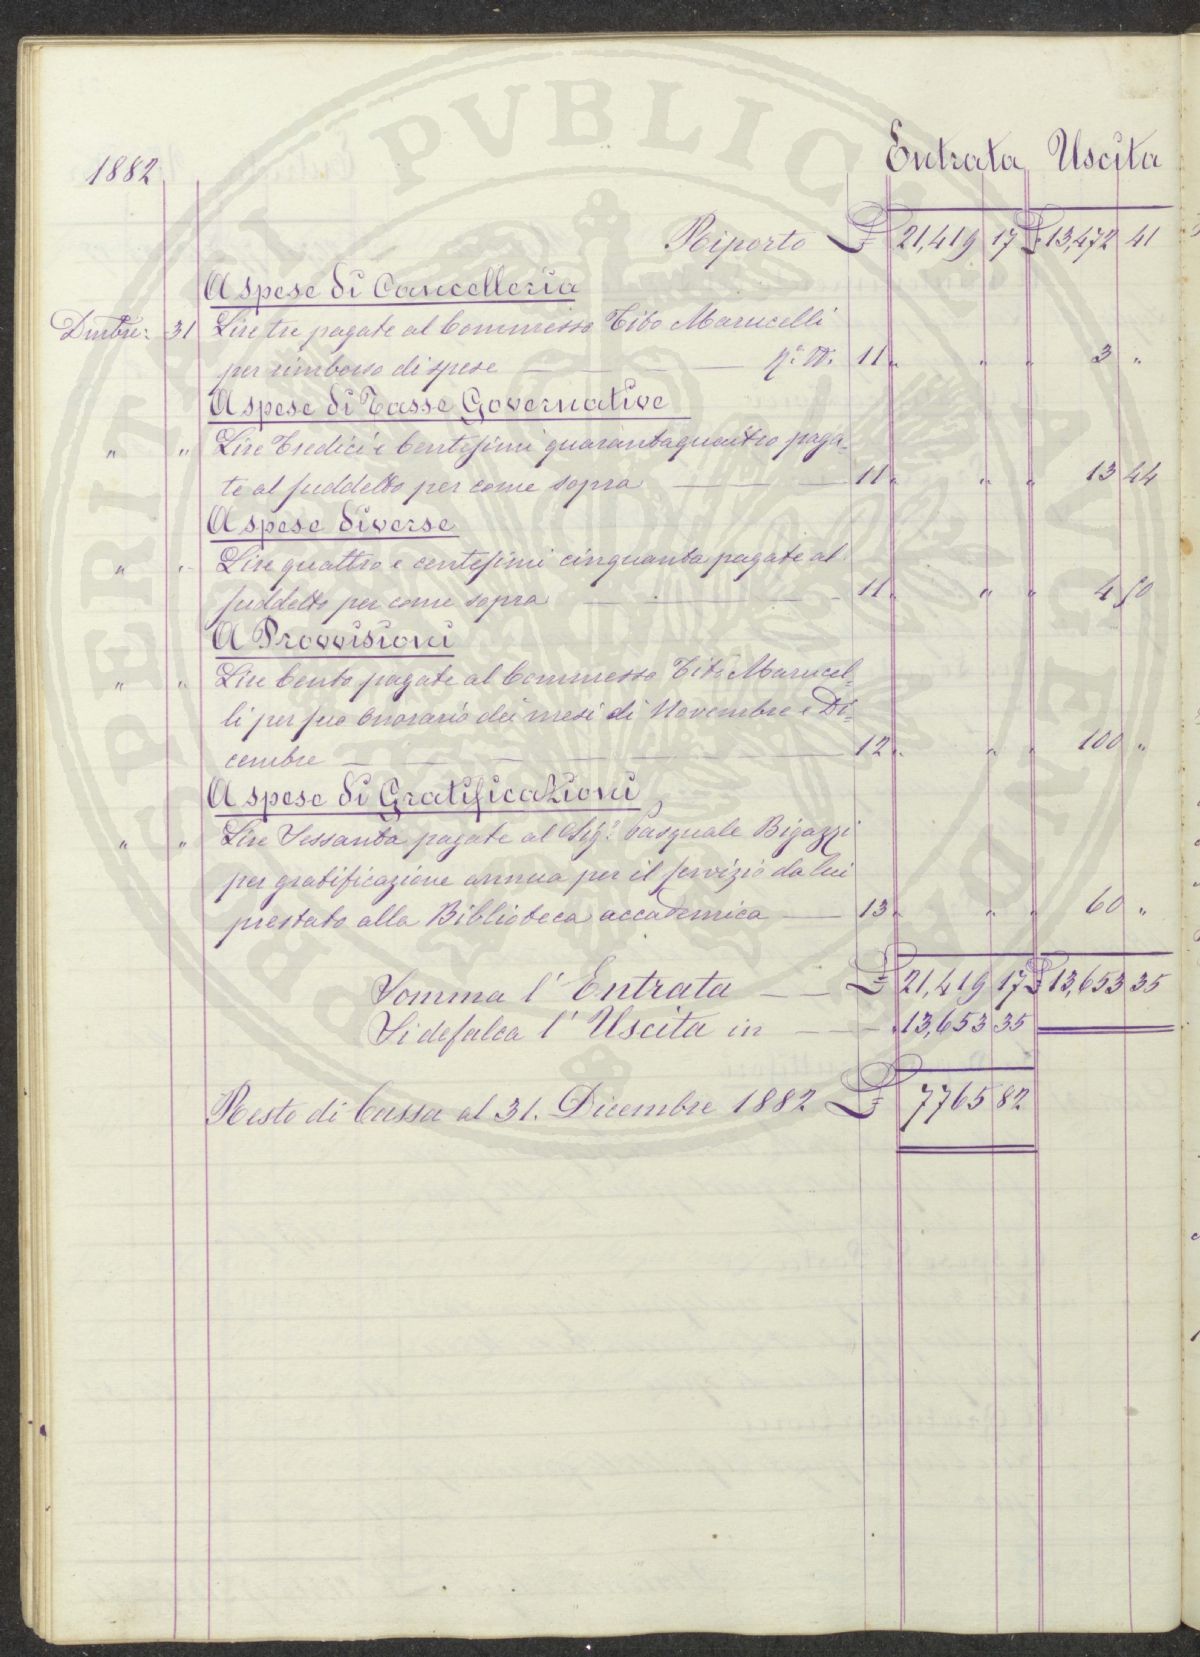 Entrata Uscita
1882
Riporto £ 21,419 17 £ 13,472 41
A spese di Cancelleria
Dmbre: 31 Lire tre pagate al Commesso Tito Marucelli
per rimborso di spese 11 " " " 3 "
A spese di Tasse Governative
" " Lire Tredici e Centesimi quarantaquattro paga-
te al suddetto per come sopra 11 " " " 13 44
A spese diverse
" " Lire quattro e centesimi cinquanta pagate al
suddetto per come sopra 11 " " " 4 50
A Provvisioni
" " Lire Cento pagate al Commesso Tito Marucel-
li per suo Onorario dei mesi di Novembre e Di-
cembre 12 " " " 100 "
A spese di Gratificazioni
" " Lire Sessanta pagate al Sig: Pasquale Bigazzi
per gratificazione annua per il servizio da lui
prestato alla Biblioteca accademica 13 " " " 60 "
Somma l' Entrata £ 21,419 17 £ 13,653 35
Si defalca l' Uscita in " 13,653 35
Resto di Cassa al 31. Dicembre 1882 £ 7765 82